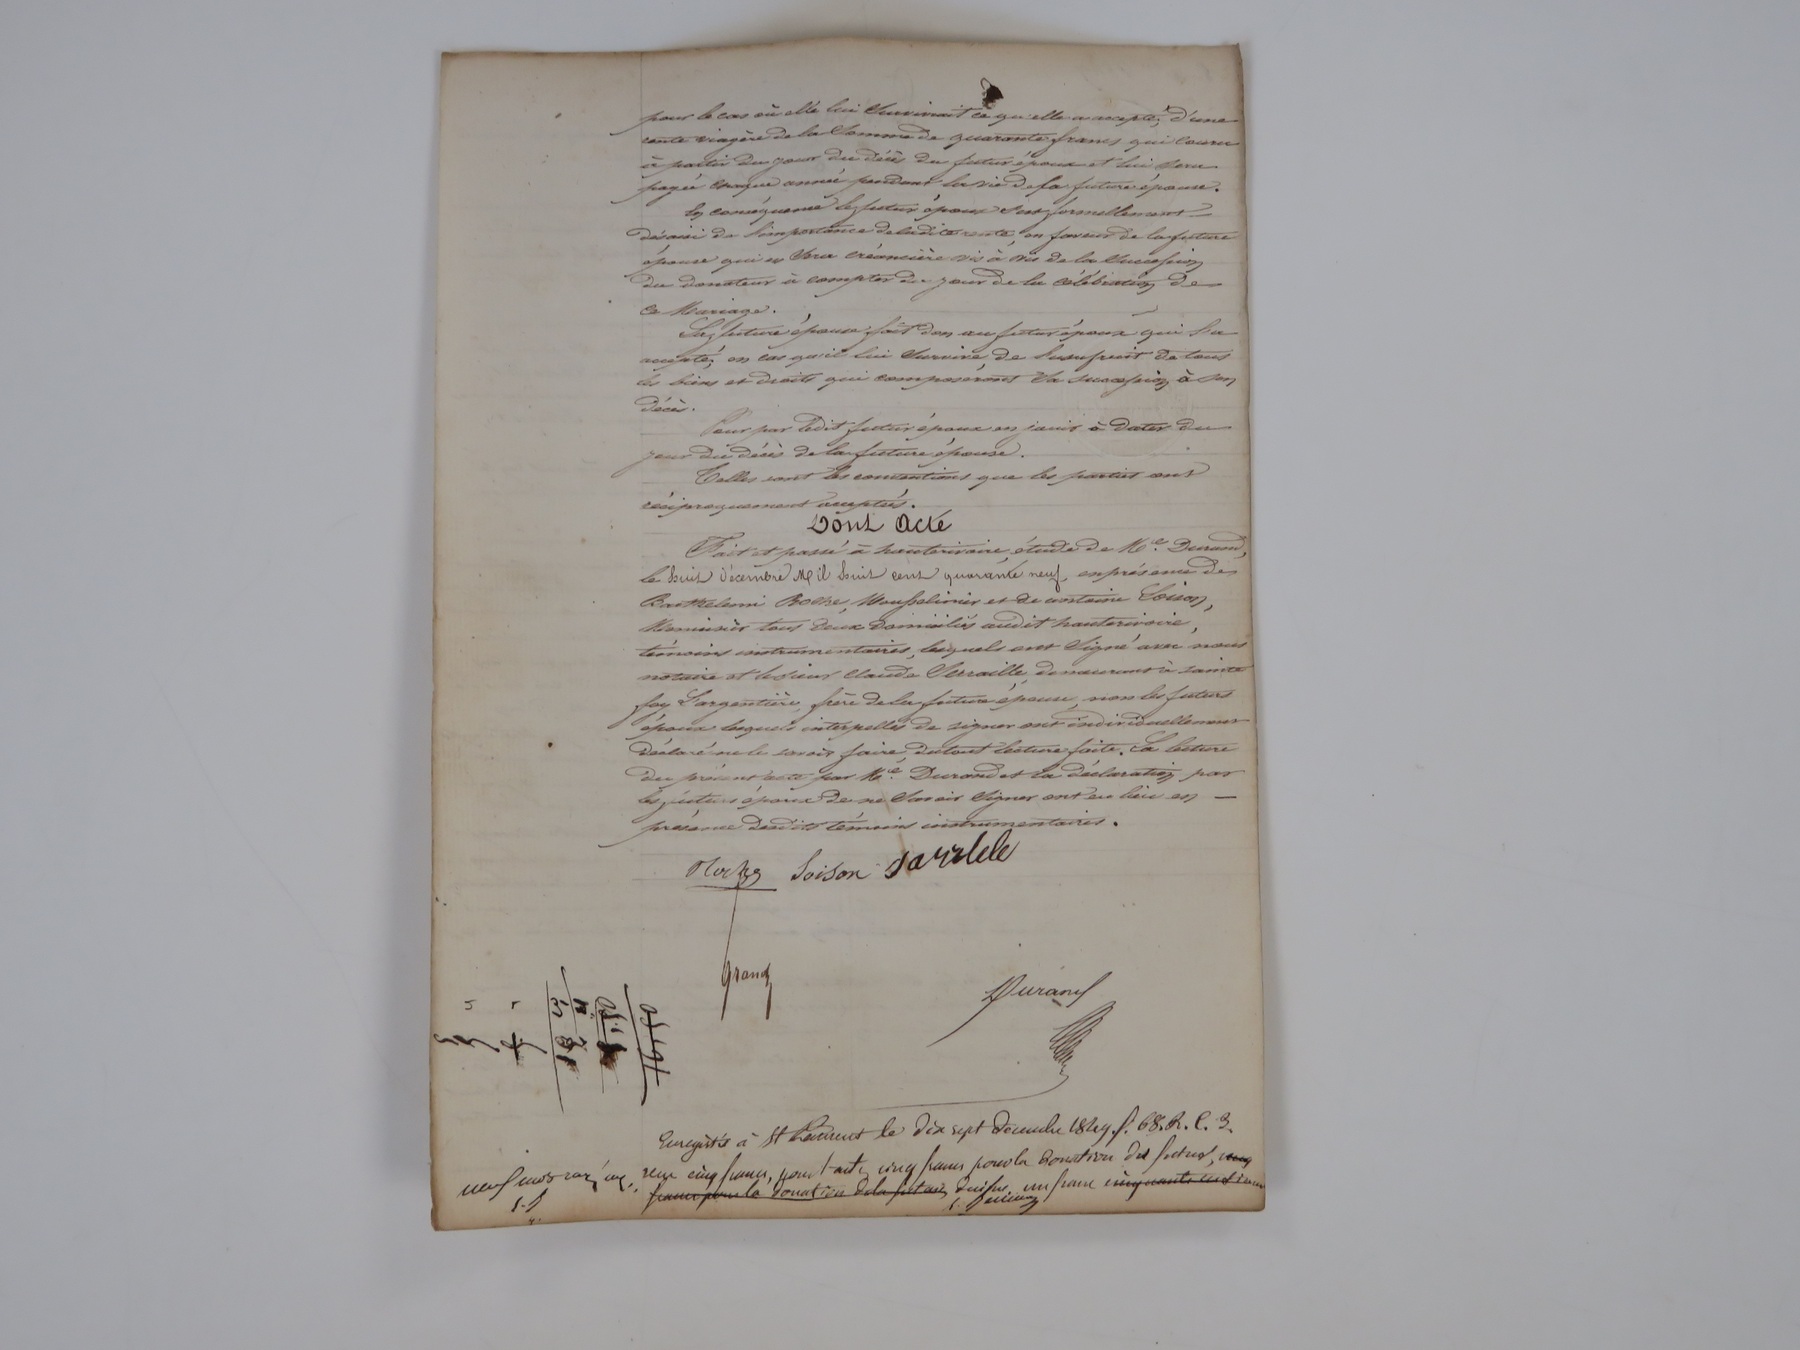 pour le cas où elle lui Survivrait ce qu'elle accepte, d'une
rente viagère de la Somme de quarante francs qui courra
à partir du jour du décès du futur époux et lui sera
payée chaque année pendant la vie de la future épouse.
En conséquence le futur époux s'est formellement
désaisi de l'importance de ladite rente, en faveur de la future
épouse qui en Sera créancière vis à vis de la Succession
du donateur à compter du jour de la célébration de
ce Mariage.
La future épouse fait don au futur époux qui l'a
accepté, en cas qu'il lui Survive, de l'usufruit de tous
les biens et droits qui composeront Sa succession à son
décès.
Pour par ledit futur époux en jouir à dater du
jour du décès de la future épouse.
Telles sont les conventions que les parties ont
réciproquement acceptées.
Dont Acte
Fait et passé à hauterivoire, étude de Me. Durand,
le huit Décembre Mil huit cent quarante neuf, en présence de
Barthelemi Roche, Mousselinier et de Loison,
Menuisier tous deux domiciliés audit hauterivoire,
témoins instrumentaires, lesquels ont Signé avec nous
notaire et le sieur Claude Serraille, demeurant à sainte
foy L'argentière, frère de la future épouse, non les futurs
époux lesquels interpellés de signer ont individuellement
déclaré ne le savoir faire du tout lecture faite. La lecture
du présent acte par Me. Durand et la déclaration par
les futurs époux de ne Savoir Signer ont eu lieu en
présence desdits témoins instrumentaires.
Roche Loison
grand
Durand
Enregistré à St Laurent le dix sept décembre 1849 f. 68. R. C. 3.
reçu cinq francs, pour l'acte, cinq francs pour la Donation du futur, cinq
francs pour la donation de la future, Dixième, un franc cinquante centimes
neuf mots rayés